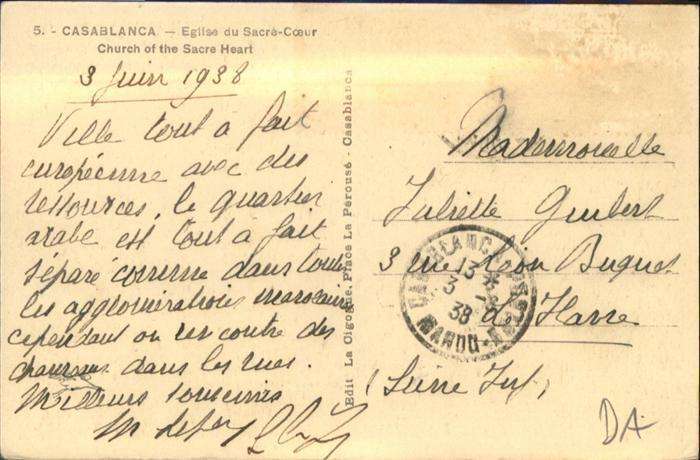 5. - CASABLANCA — Eglise du Sacré-Cœur
Church of the Sacre Heart
3 Juin 1938
Ville tout à fait
européenne avec des
ressources, le quartier
arabe est tout à fait
séparé comme dans toutes
les agglomérations marocaines
cependant on rencontre des
chameaux dans les rues.
Meilleurs souvenirs
Edit La Cigogne, Place La Pérouse - Casablanca
Mademoiselle
Juliette Guibert
3 rue Léon Buquet
Le Havre
(Seine Inf)
CASABLANCA POSTES
13
3 - 6
38
MAROC
DA